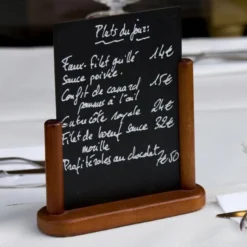 Plats du jour:
Faux-filet grillé 14€
sauce poivrée
Confit de canard 15€
pommes à l'ail
Entrecôte royale 24€
Filet de boeuf sauce 32€
morille
Profitéroles au chocolat 7€50